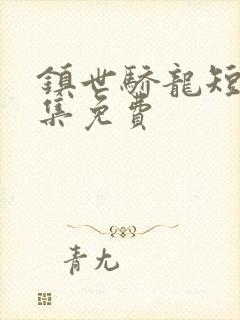 鎮世驕龍短
集免費
青尢